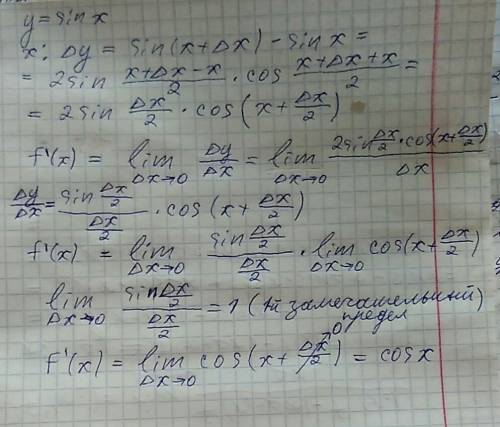 y = sin x
x: Δy = sin(x+Δx) - sin x =
= 2sin (x+Δx-x)/2 · cos (x+Δx+x)/2 =
= 2sin Δx/2 · cos(x + Δx/2)
f'(x) = lim Δx→0 Δy/Δx = lim Δx→0 (2sin Δx/2 · cos(x+Δx/2))/Δx
Δy/Δx = (sin Δx/2)/(Δx/2) · cos(x + Δx/2)
f'(x) = lim Δx→0 (sin Δx/2)/(Δx/2) · lim Δx→0 cos(x+Δx/2)
lim Δx→0 (sin Δx/2)/(Δx/2) = 1 (1й замечательный предел)
f'(x) = lim Δx→0 cos(x + Δx/2 →0) = cos x